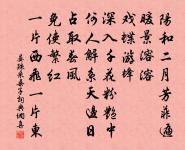 陽和二月芳菲遍
暖景溶溶
戲蝶遊蜂
深入千花粉豔中
何人解繫天邊日
占取春風
免使繁紅
一片西飛一片東
晏殊采桑子詞